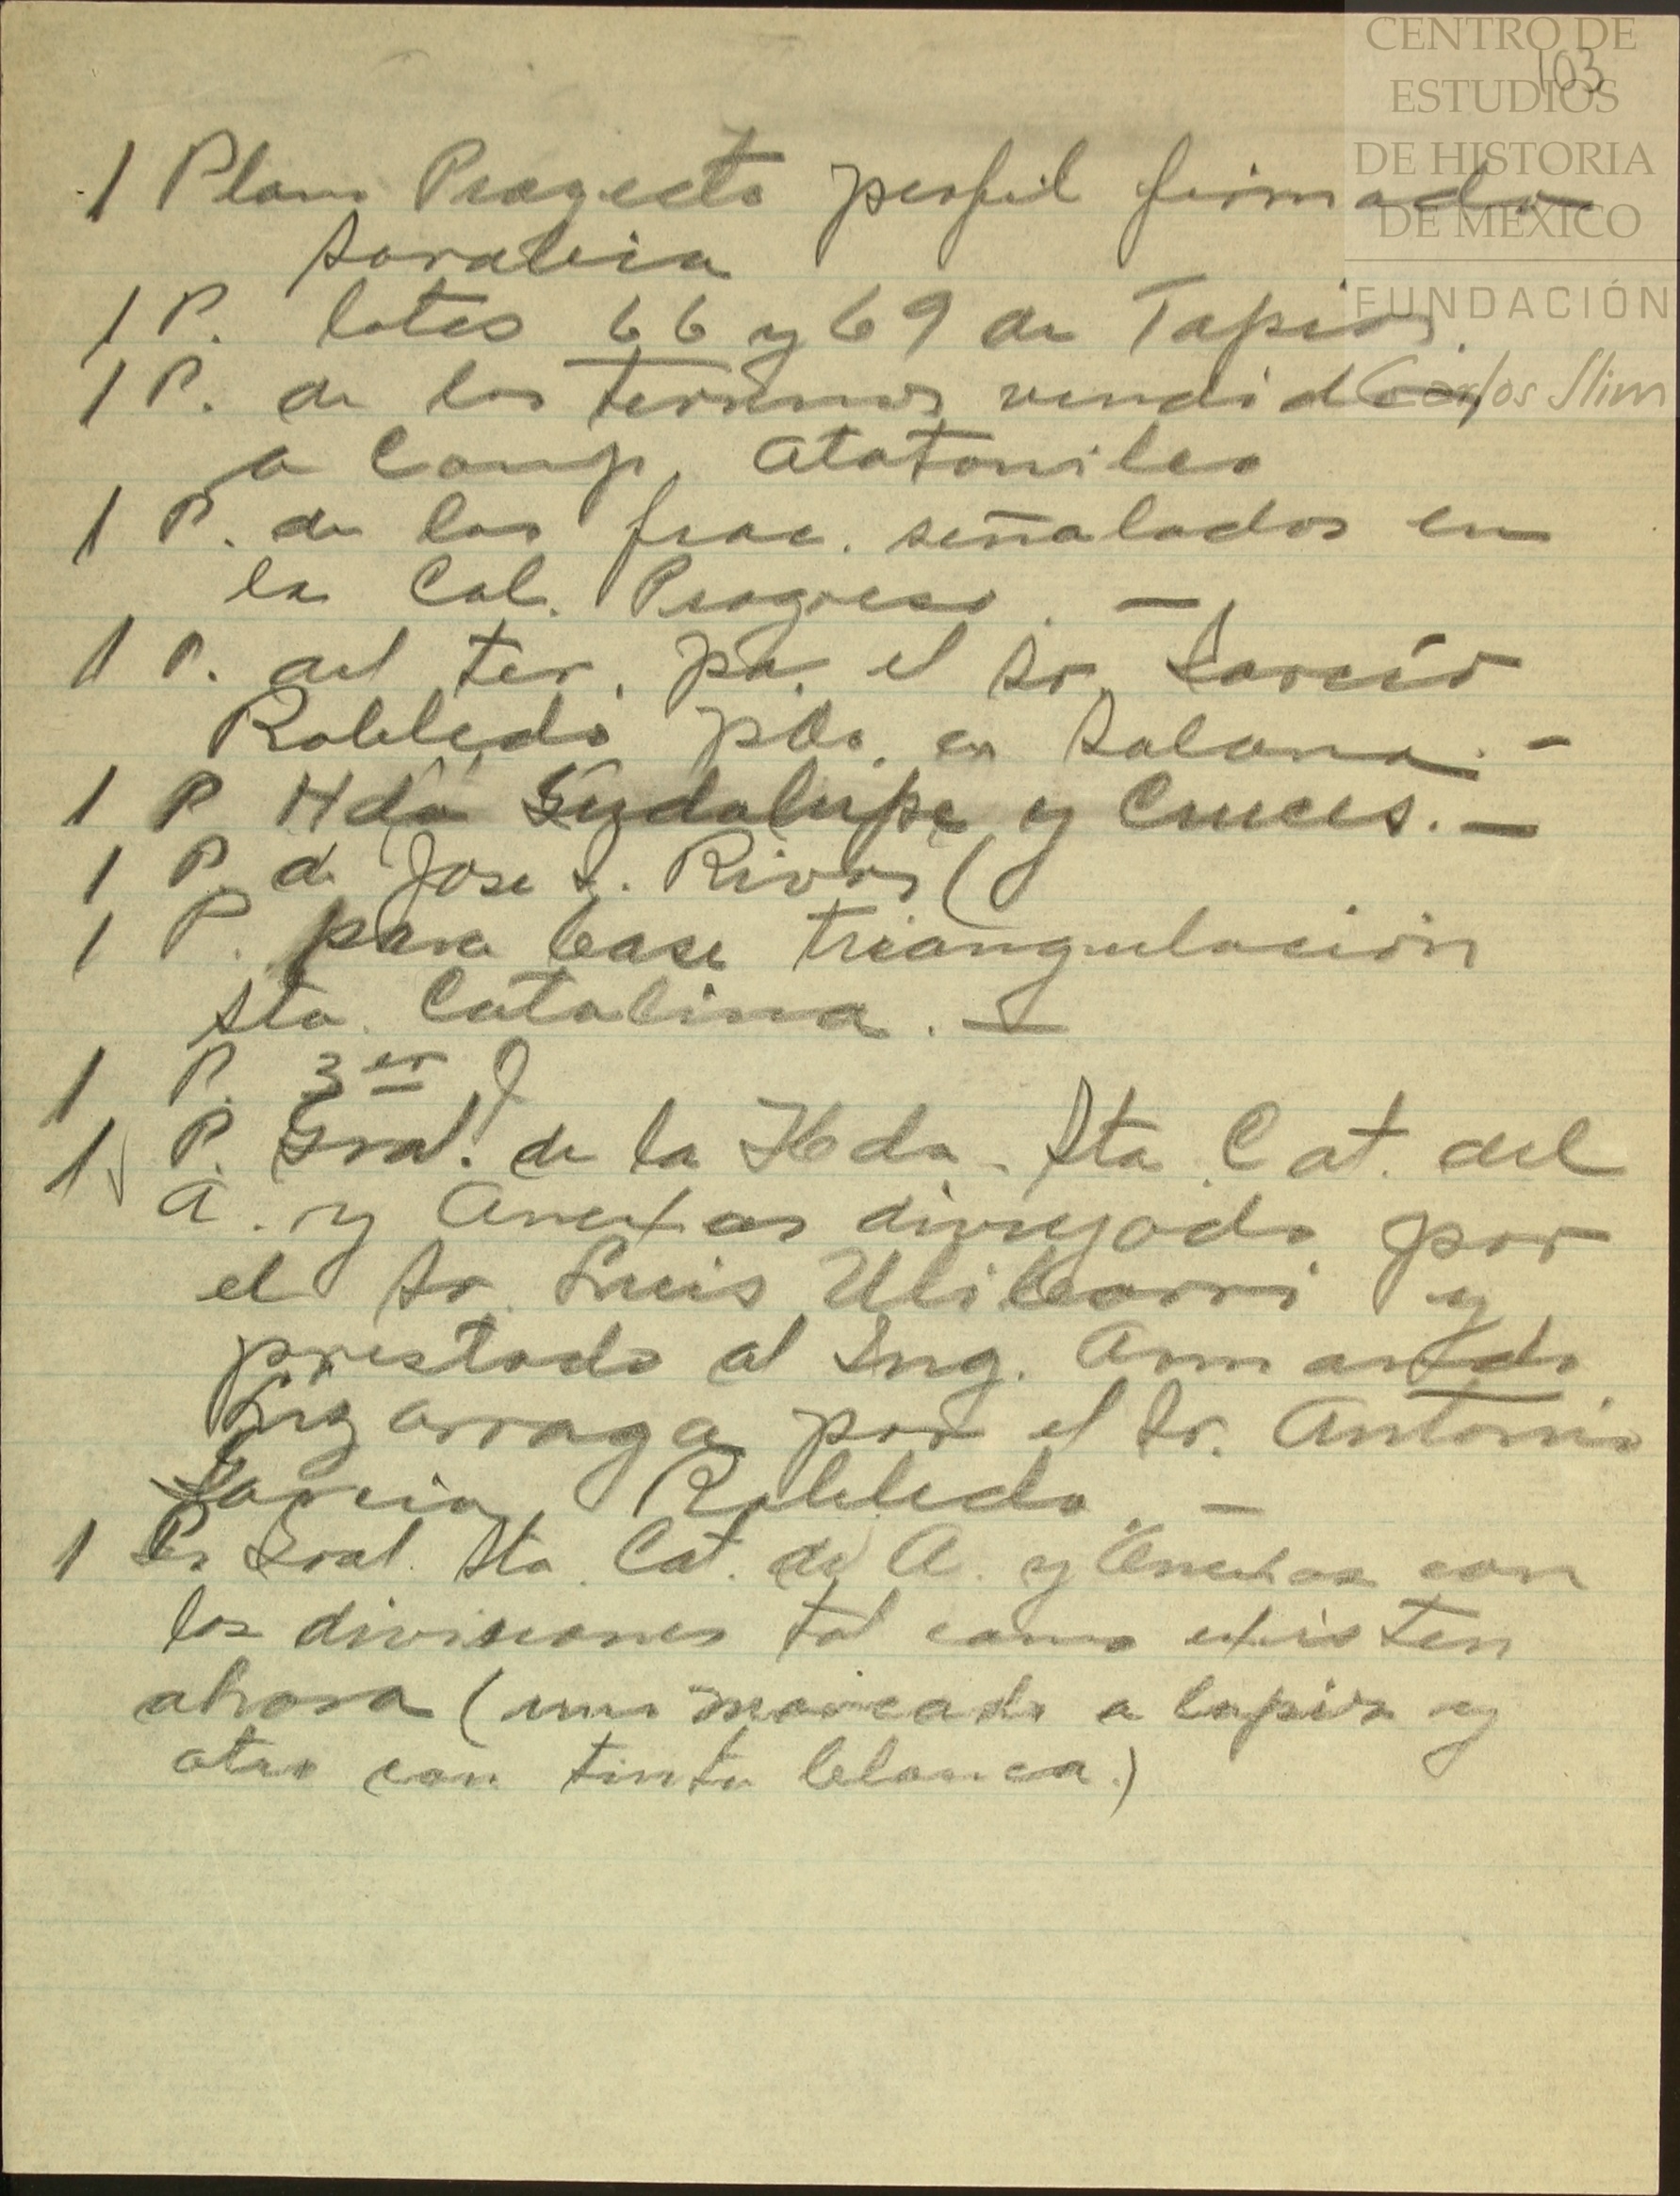 CENTRO DE
ESTUDIOS
DE HISTORIA
DE MÉXICO
FUNDACIÓN
Carlos Slim
103
1 Plano Proyecto perfil firmado
Sarabia
1 P. lotes 66 y 69 de Tapias.
1 P. de los terrenos vendidos
a Comp. Atotonilco
1 P. de las frac. señalados en
la Col. Progreso. —
1 P. del ter. pa. el Sr. García
Robledo pbo. en Saloma. —
1 P Hda Guadalupe y Cruces. —
1 P. de Jose L. Rivas (
1 P. para base triangulación
Sta. Catalina. —
1 P. 3er
1 P. Gral. de la Hda. Sta. Cat. del
A. y Anexas divujado por
el Sr. Luis Ulibarri y
prestado al Ing. Armando
Lizarraga por el Sr. Antonio
Garcia Robledo. —
1 P. Gral. Sta. Cat. del A. y Anexas con
las divisiones tal como existen
ahora (uno marcado a lapiz y
otro con tinta blanca.)